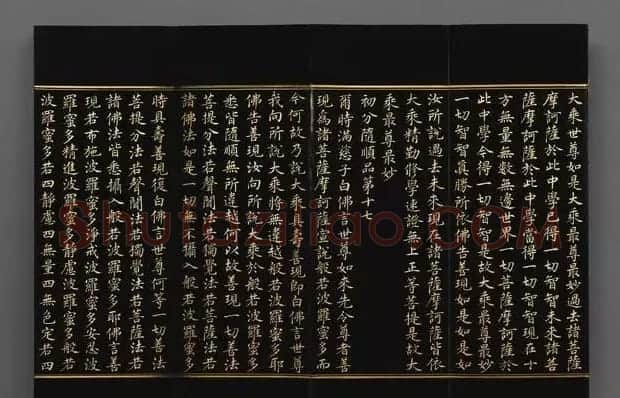 大乘世尊如是大乘最尊最妙過去諸菩薩
摩訶薩於此中學已得一切智智未來諸菩
薩摩訶薩於此中學當得一切智智現在十
方無量無數無邊世界一切菩薩摩訶薩於
此中學今得一切智智是故大乘最尊最妙
一切智智真勝所依佛告善現如是如是如
汝所說過去未來現在諸菩薩摩訶薩皆依
大乘精勤修學速證無上正等菩提是故大
乘最尊最妙
初分隨順品第十七
爾時滿慈子白佛言世尊如來先令尊者善
現為諸菩薩摩訶薩宣說般若波羅蜜多而
今何故乃說大乘具壽善現即白佛言世尊
我向所說大乘將無違越般若波羅蜜多耶
佛告善現汝向所說大乘於般若波羅蜜多
悉皆隨順無所違越何以故善現一切善法
菩提分法若聲聞法若獨覺法若菩薩法若
諸佛法如是一切無不攝入般若波羅蜜多
時具壽善現復白佛言世尊何等一切善法
菩提分法若聲聞法若獨覺法若菩薩法若
諸佛法皆悉攝入般若波羅蜜多耶佛言善
現若布施波羅蜜多淨戒波羅蜜多安忍波
羅蜜多精進波羅蜜多靜慮波羅蜜多般若
波羅蜜多若四靜慮四無量四無色定若四
Shufaziliao.com